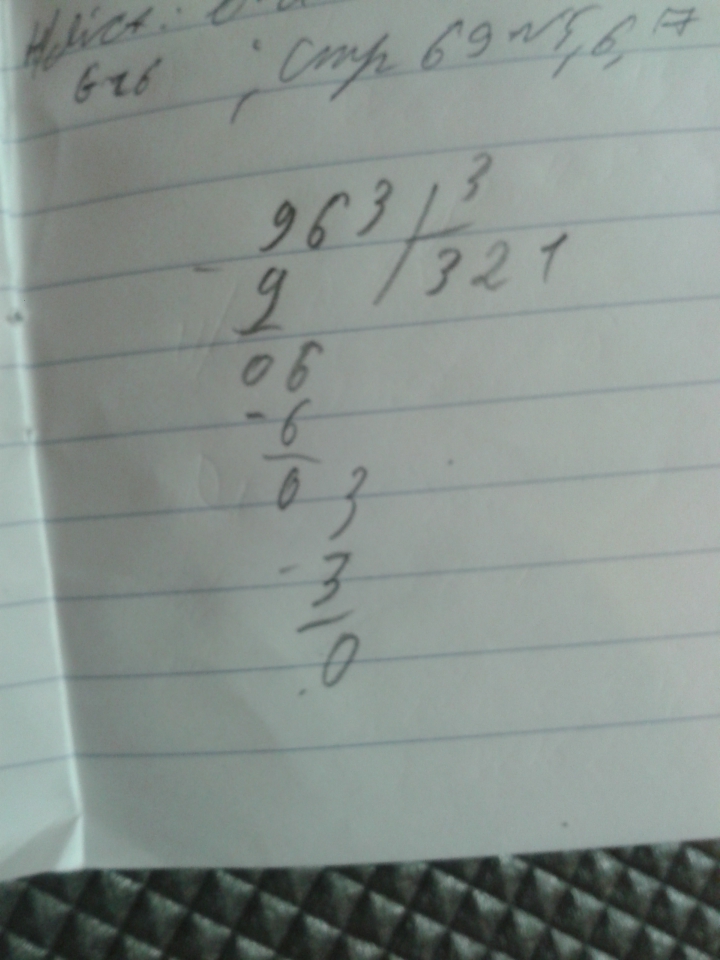 ; стр 69 №5, 6, 7
963 3
- 9 321
06
- 6
0 3
- 3
0